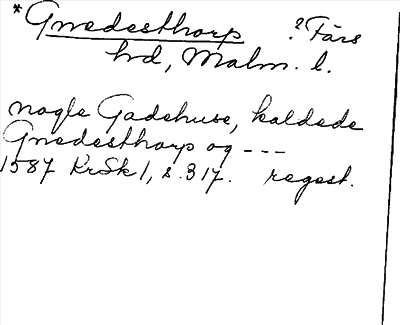 *Gnedesthorp ?Färs
hrd, Malm. l.
nogle Gadehuse, kaldede
Gnedesthorp og ---
1587 KrSk 1, s. 317. regest.